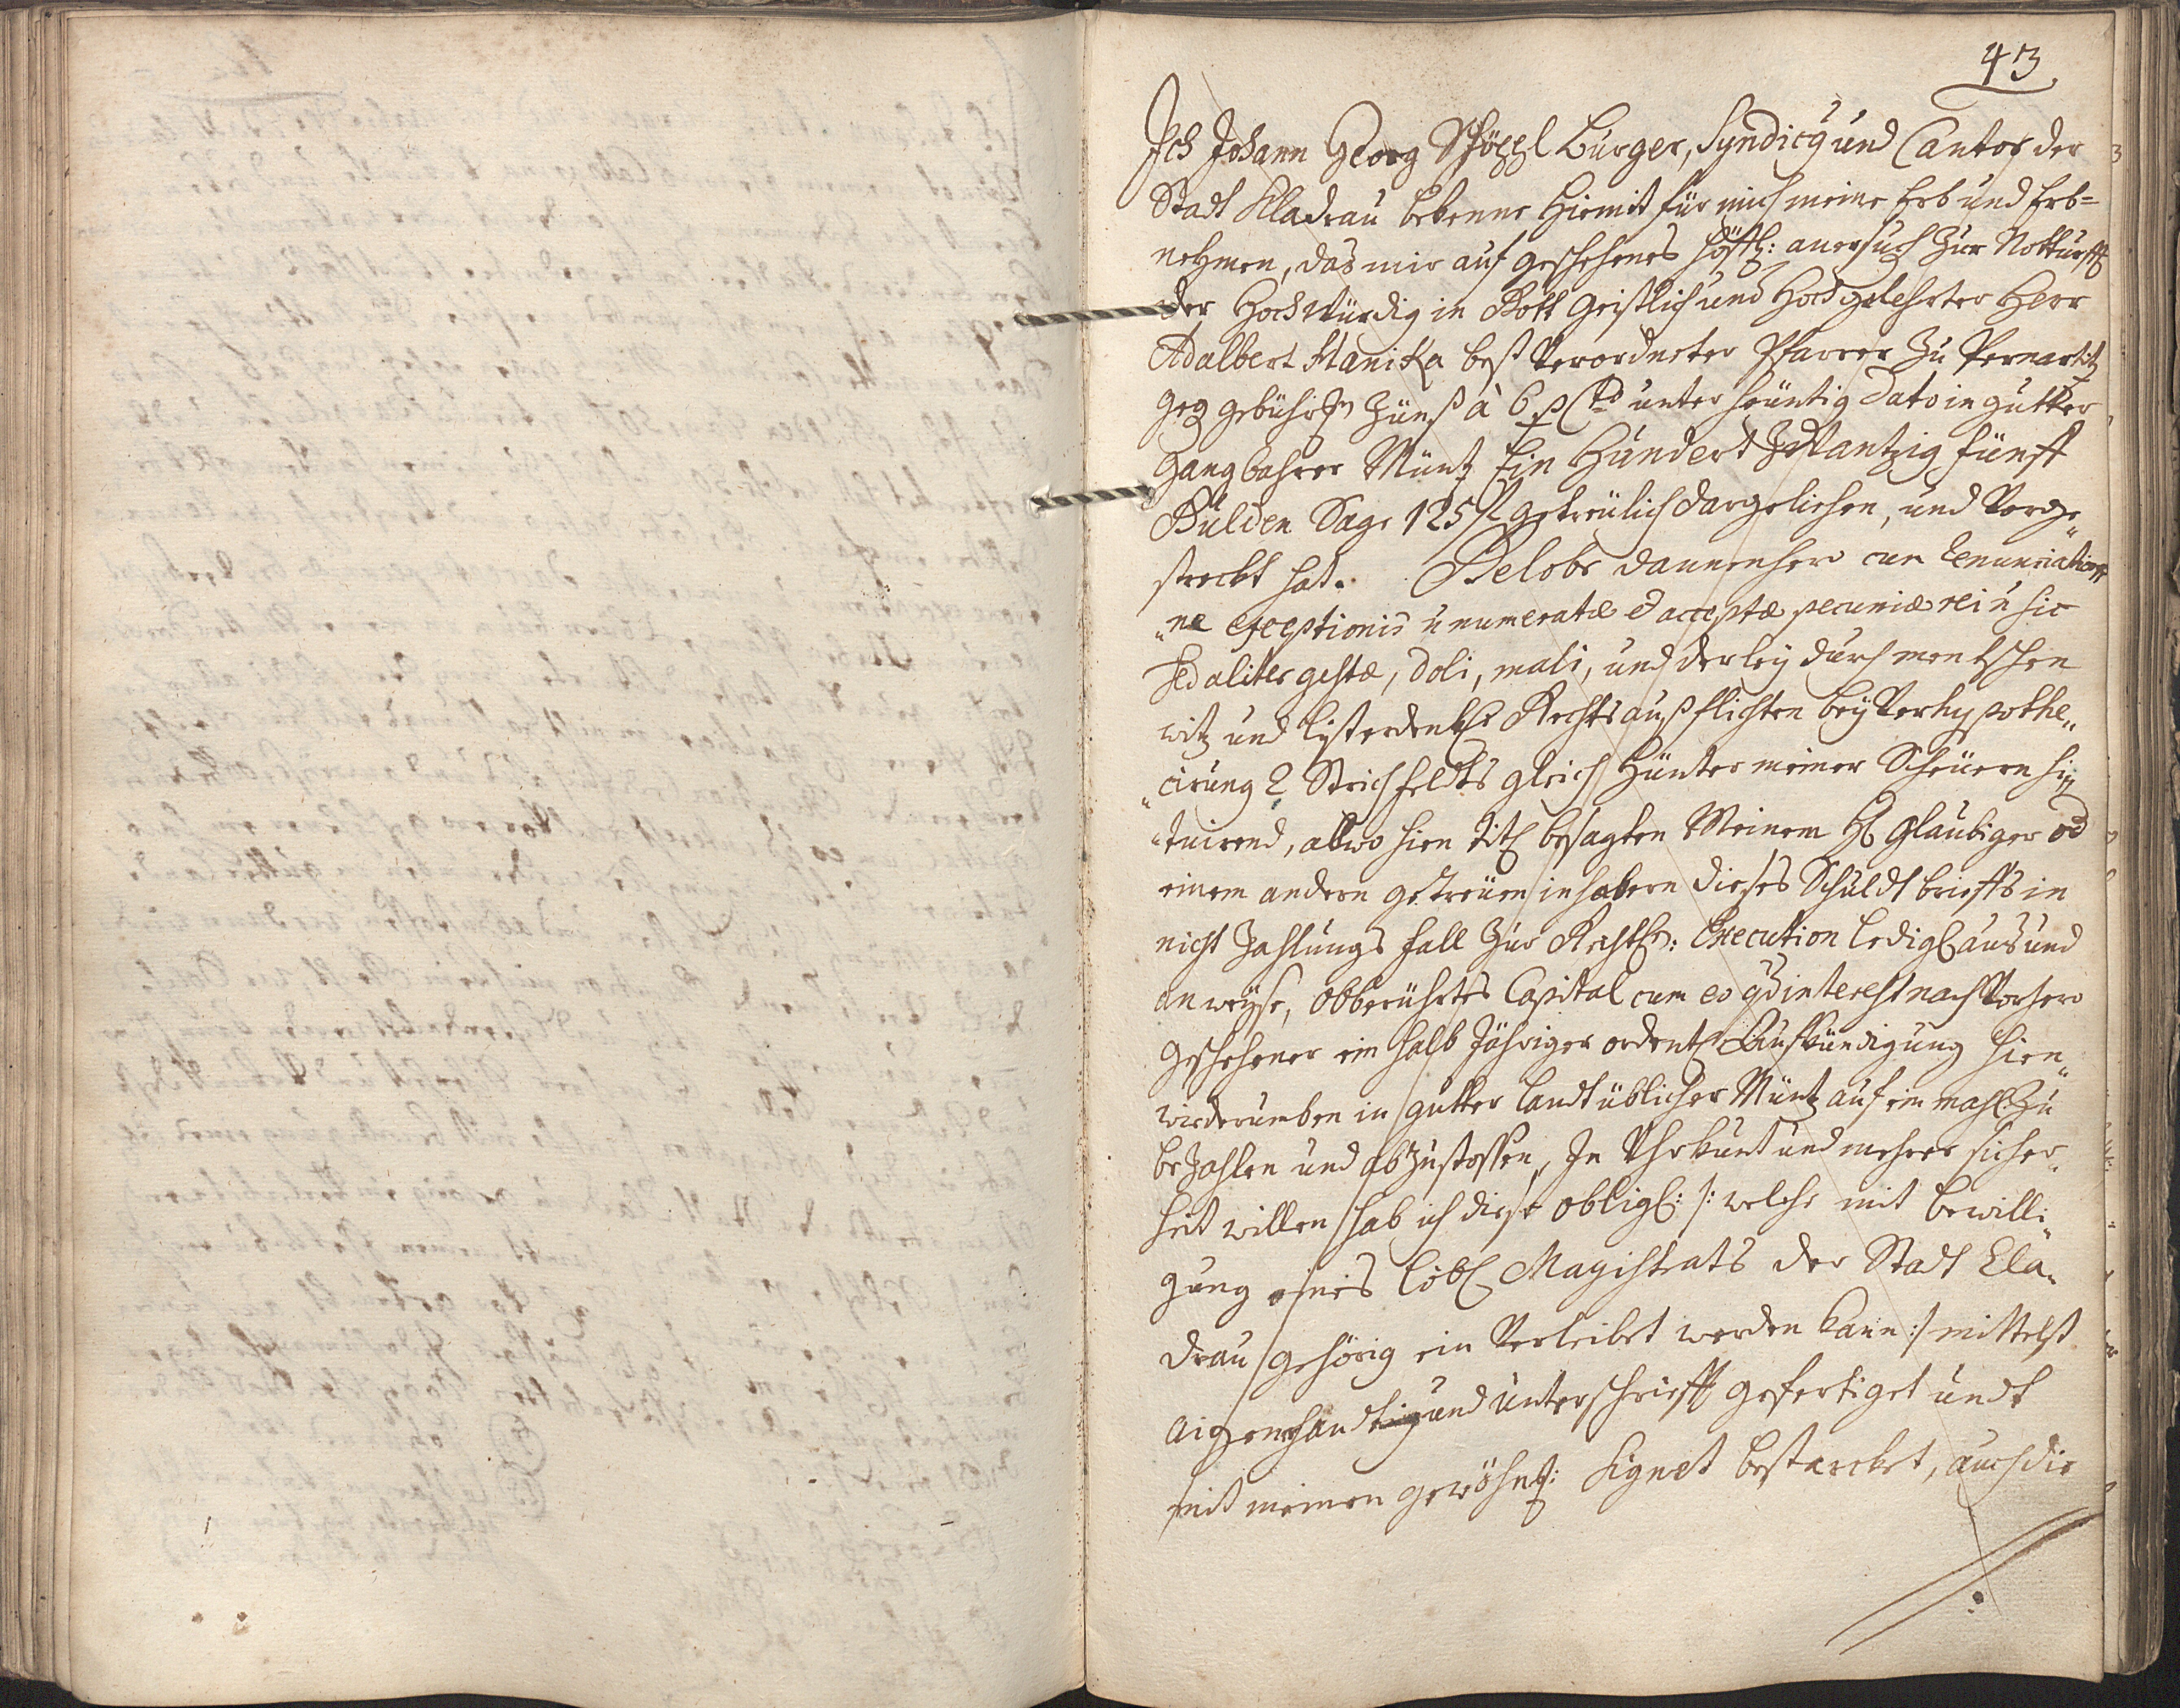 43
Ich Johann Georg Burger, Syndicq und Cantor der
Stadt Kladrau bekenne hiemit für mich meine Erb und Erb=
nehmen, das mir auf geschehenes höffl: anersuch zur Notturfft
der Hochwürdig in Gott Geistlich und Hochgelehrter Herr
Adalbert Haniza best Verordneter Pfarrer zu Pernartitz
geg gebühren Zünß à 6 p Cto unter heüntig Dato in gutter
gangbahrer Müntz Ein Hundert Zwantzig fünff
Gulden Sage 125 fl getreülich dargeliehen, und Vorge„
streckt hat. Gelobe dannenhero cum renunciatio„
„ne exceptionis ñ numeratæ et acceptæ pecuniæ rei ñ sic
sed aliter gestæ, doli, mali, und derley durch mentschen
witz und Rechts außflichten bey Verhypothe„
„cirung 2 Strich feldts gleich hünter meiner Scheüern si„
„tuirend, allwo hien titl besagten Meinem H Glaubiger od
einem andern getreüen inhabern dieses Schuldt brieffs in
nicht Zahlungs fall zur Rechtl: Execution ledigl aus und
anweyse, obberührtes Capital cum eo qd interest nach Vorhero
geschehener ein halb Jähriger ordentl Aufkündigung hien„
wiederumben in gutter landt üblicher Müntz auf ein mahl zu
bezahlen und abzustossen, In Uhrkunt und mehrer sicher„
heit willen hab ich diese obligl: /: welche mit bewilli„
gung eines löbl Magistrats der Stadt Cla„
drau gehörig ein Verleibet werden kann :/ mittelst
aigenhandtig und unterschriefft gefertiget undt
mit meinen gewöhnl: Signet bestarcket, auch die